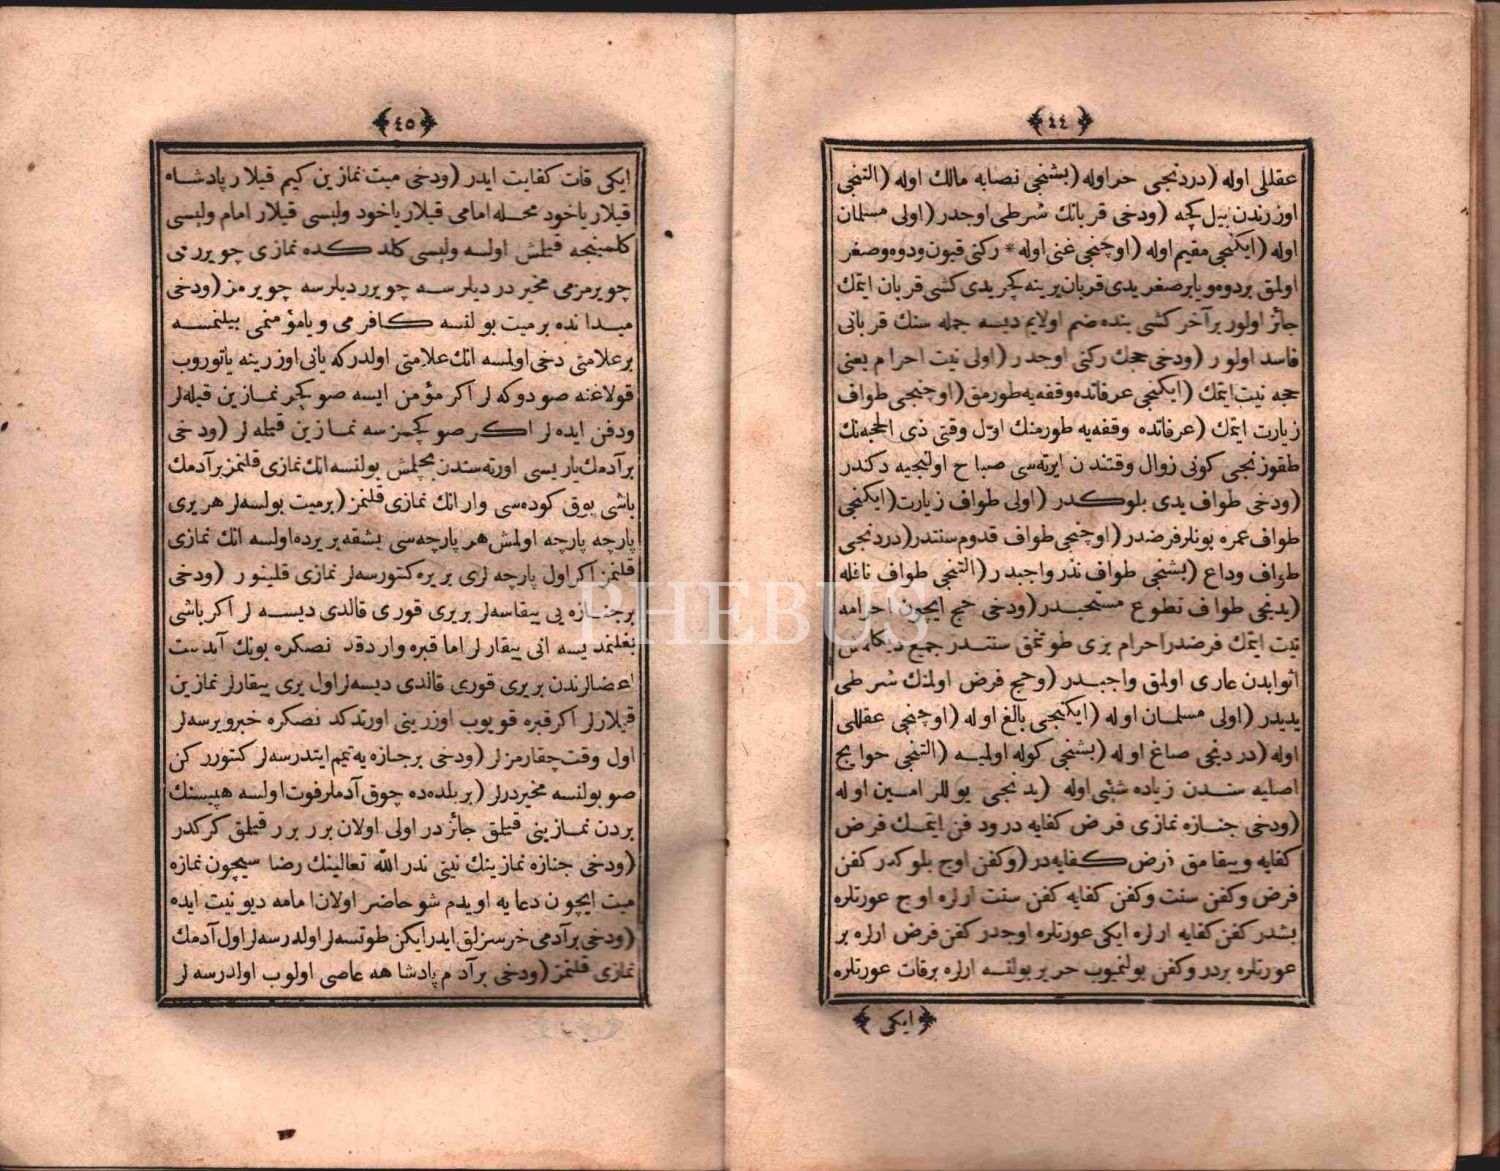 ٤٤
عقللى اوله (دردنجى حراوله (بشنجى نصابه مالك اوله (التنجى
اوزرندن ييل كچه (ودخى قربانك شرطى اوجدر (اولى مسلمان
اوله (ايكنجى مقيم اوله (اوچنجى غنى اوله * ركنى قيون ودوه وصغر
اولمق بردوه ويا برصغر يدى قربان يرينه كچر يدى كشى قربان ايتمك
جائز اولور برآخر كشى بنده ضم اولايم ديسه جمله سنك قربانى
فاسد اولور (ودخى حجك ركنى اوجدر (اولى نيت احرام يعنى
حجه نيت ايتمك (ايكنجى عرفاتده وقفه يه طورمق (اوچنجى طواف
زيارت ايتمك (عرفاتده وقفه يه طورمنك اول وقتى ذى الحجه نك
طقوزنجى كونى زوال وقتندن ايرته سى صباح اولنجيه دكندر
(ودخى طواف يدى بلوكدر (اولى طواف زيارت (ايكنجى
طواف عمره بونلر فرضدر (اوچنجى طواف قدوم سنتدر (دردنجى
طواف وداع (بشنجى طواف نذر واجبدر (التنجى طواف نافله
(يدنجى طواف تطوع مستحبدر (ودخى حج ايچون احرامه
نيت ايتمك فرضدر احرام بزى طوتمق سنتدر جميع ديكلمش
اثوابدن عارى اولمق واجبدر (وحج فرض اولمنك شرطى
يديدر (اولى مسلمان اوله (ايكنجى بالغ اوله (اوچنجى عقللى
اوله (دردنجى صاغ اوله (بشنجى كوله اولميه (التنجى حوايج
اصليه سندن زياده شيئى اوله (يدنجى يوللر امين اوله
(ودخى جنازه نمازى فرض كفايه در ودفن ايتمك فرض
كفايه وييقامق فرض كفايه در (وكفن اوج بلوكدر كفن
فرض وكفن سنت وكفن كفايه كفن سنت ارلره اوج عورتلره
بشدر كفن كفايه ارلره ايكى عورتلره اوجدر كفن فرض ارلره بر
عورتلره بردر وكفن بولنميوب حرير بولنسه ارلره برقات عورتلره
ايكى
٤٥
ايكى قات كفايت ايدر (ودخى ميت نمازين كيم قيلار پادشاه
قيلار ياخود محله امامى قيلار ياخود وليسى قيلار امام وليسى
كلمينجه قيلمش اولسه وليسى كلدكده نمازى چوير رمى
چويرمزمى مخيردر ديلرسه چويرر ديلرسه چويرمز (ودخى
ميدانده برميت بولنسه كافرمى ويا مؤمنمى بيلنمسه
برعلامتى دخى اولمسه انك علامتى اولدركه يانى اوزرينه ياتوروب
قولاغنه صو دوكه لر اكر مؤمن ايسه صو كچر نمازين قيله لر
ودفن ايده لر اكر صو كچمزسه نمازين قيلمه لر (ودخى
برآدمك ياريسى اورته سندن بچلمش بولنسه انك نمازى قلنمز برآدمك
باشى يوق كوده سى وار انك نمازى قلنمز (برميت بولسه لر هر يرى
پارچه پارچه اولمش هر پارچه سى بشقه بر يرده اولسه انك نمازى
قلنمز اكر اول پارچه لرى بر يره كتورسه لر نمازى قلينور (ودخى
برجنازه يى ييقاسه لر بريرى قورى قالدى ديسه لر اكر باشى
بغلنمديسه انى ييقارلر اما قبره واردقدنصكره بونك آبدست
اعضالرندن بريرى قورى قالدى ديسه لر اول يرى ييقارلر نمازين
قيلارلر اكر قبره قويوب اوزرينى اورتدكدنصكره خبر ويرسه لر
اول وقت چقارمزلر (ودخى برجنازه يه تيمم ايتدرسه لر كتورركن
صو بولنسه مخيردرلر (بربلده ده چوق آدملر فوت اولسه هپيسنك
بردن نمازينى قيلمق جائزدر اولى اولان برر برر قيلمق كركدر
(ودخى جنازه نمازينك نيتى ندر الله تعالينك رضاسيچون نمازه
ميت ايچون دعايه اويدم شو حاضر اولان امامه ديو نيت ايده
(ودخى برآدمى خرسزلق ايدرايكن طوتسه لر اولدرسه لر اول آدمك
نمازى قلنمز (ودخى برآدم پادشاهه عاصى اولوب اولدرسه لر
PHEBUS